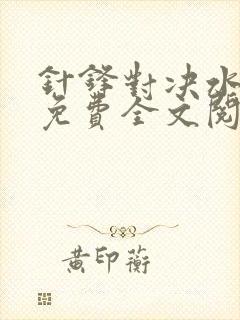 針鋒對决水
免費全文閱
黃印蘅